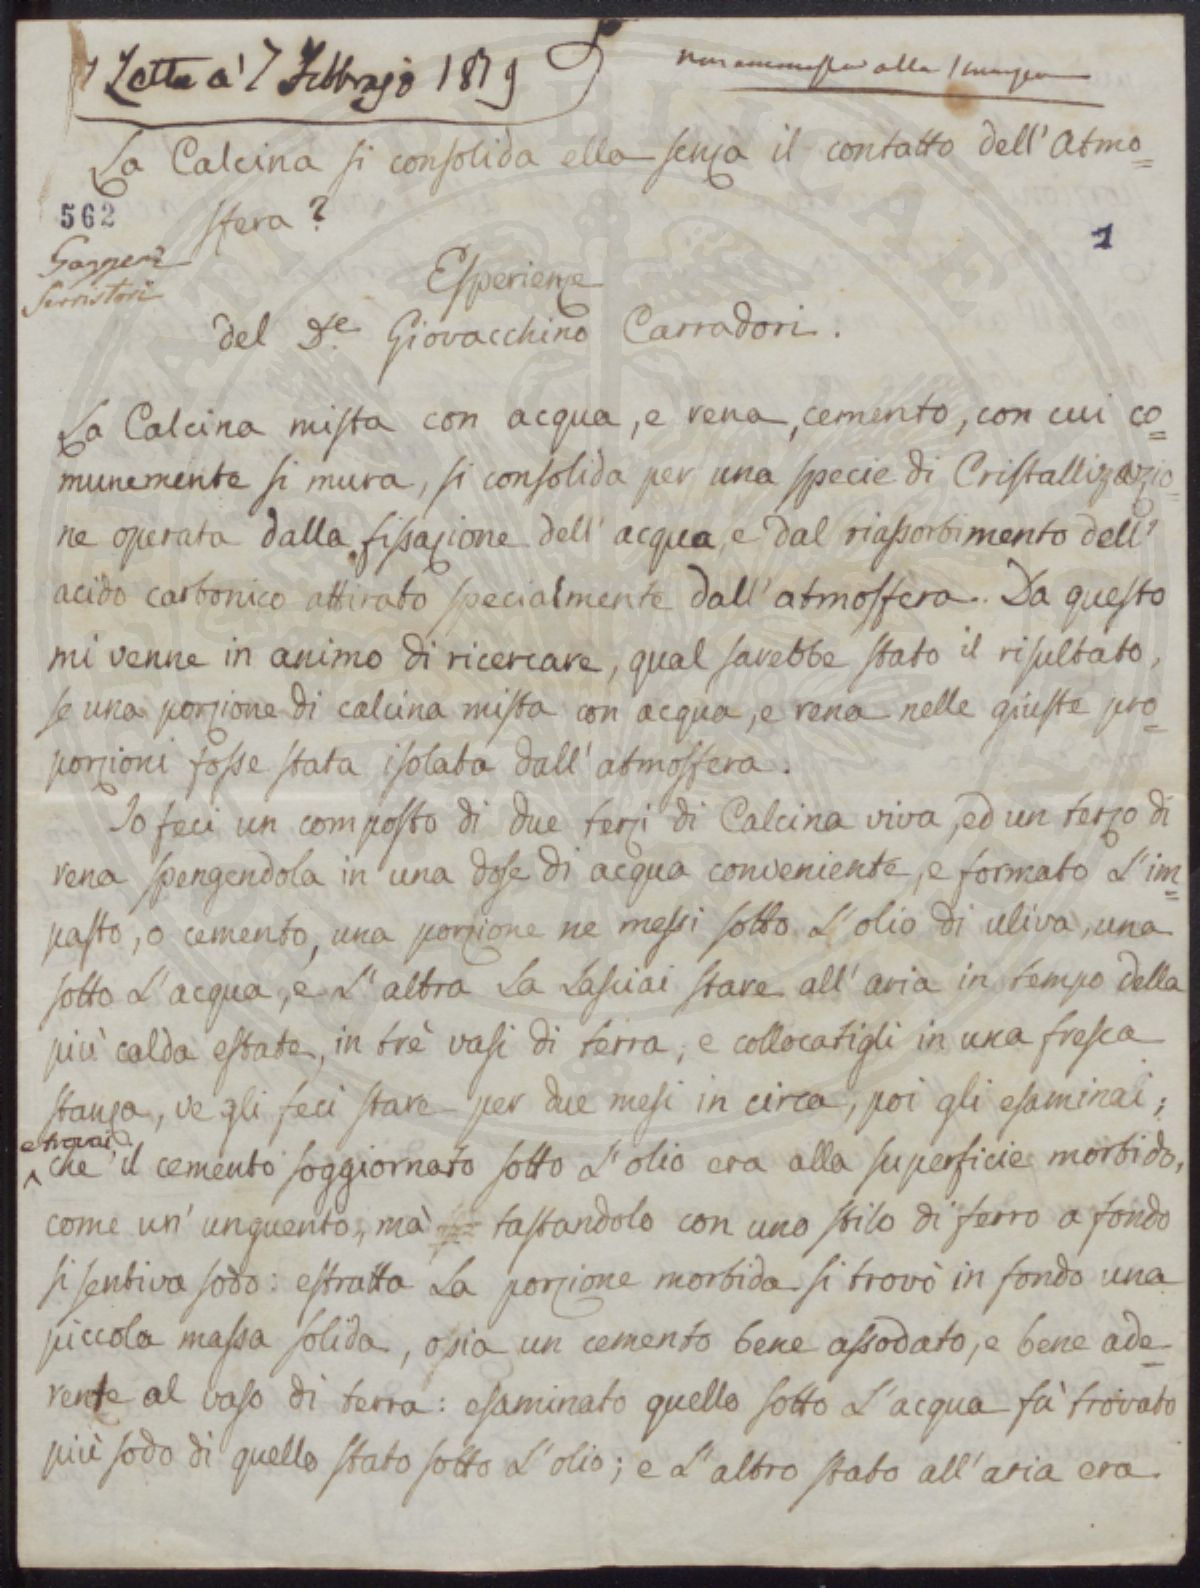 Letta a' 7 Febbrajo 1819
non ammessa alla Stampa
La Calcina si consolida ella senza il contatto dell' Atmo=
sfera?
562
1
Gazzeri
Serristori
Esperienze
del D.e Giovacchino Carradori.
La Calcina mista con acqua, e rena, cemento, con cui co=
munemente si mura, si consolida per una specie di Cristallizzazio=
ne operata dalla fissazione dell' acqua, e dal riassorbimento dell'
acido carbonico attirato specialmente dall' atmosfera. Da questo
mi venne in animo di ricercare, qual sarebbe stato il risultato,
se una porzione di calcina mista con acqua, e rena nelle giuste pro=
porzioni fosse stata isolata dall' atmosfera.
Io feci un composto di due terzi di Calcina viva, ed un terzo di
rena spengendola in una dose di acqua conveniente, e formato L'im=
pasto, o cemento, una porzione ne messi sotto L'olio di uliva, una
sotto L'acqua, e L'altra La Lasciai stare all' aria in tempo della
più calda estate, in trè vasi di terra, e collocatigli in una fresca
stanza, ve gli feci stare per due mesi in circa, poi gli esaminai;
e trovai
che il cemento soggiornato sotto L'olio era alla superficie morbido,
come un' unguento, mà tastandolo con uno stilo di ferro a fondo
si sentiva sodo: estratta La porzione morbida si trovò in fondo una
piccola massa solida, osia un cemento bene assodato, e bene ade=
rente al vaso di terra: esaminato quello sotto L'acqua fù trovato
più sodo di quello stato sotto L'olio; e L'altro stato all' aria era